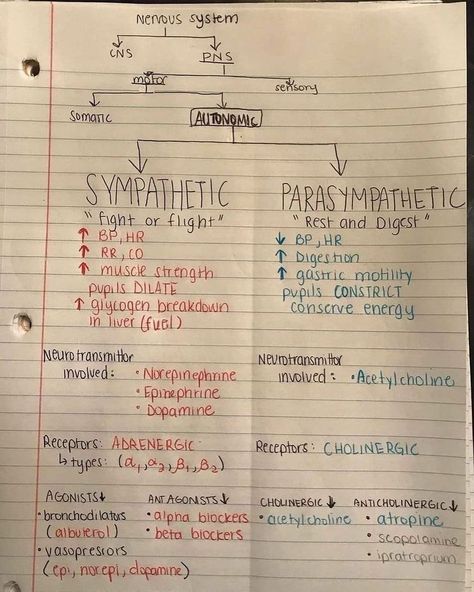 Nervous system
CNS PNS
motor sensory
Somatic AUTONOMIC
SYMPATHETIC
"fight or flight"
↑ BP, HR
↑ RR, CO
↑ muscle strength
pupils DILATE
↑ glycogen breakdown
in liver (fuel)
PARASYMPATHETIC
"Rest and Digest"
↓ BP, HR
↑ Digestion
↑ gastric motility
pupils CONSTRICT
conserve energy
Neurotransmittor
involved: • Norepinephrine
• Epinephrine
• Dopamine
Neurotransmittor
involved: • Acetylcholine
Receptors: ADRENERGIC
↳ types: (α1, α2, β1, β2)
Receptors: CHOLINERGIC
AGONISTS↓
• bronchodilators
(albuterol)
• vasopressors
(epi, norepi, dopamine)
ANTAGONISTS↓
• alpha blockers
• beta blockers
CHOLINERGIC↓
• acetylcholine
ANTICHOLINERGIC↓
• atropine
• scopolamine
• ipratroprium